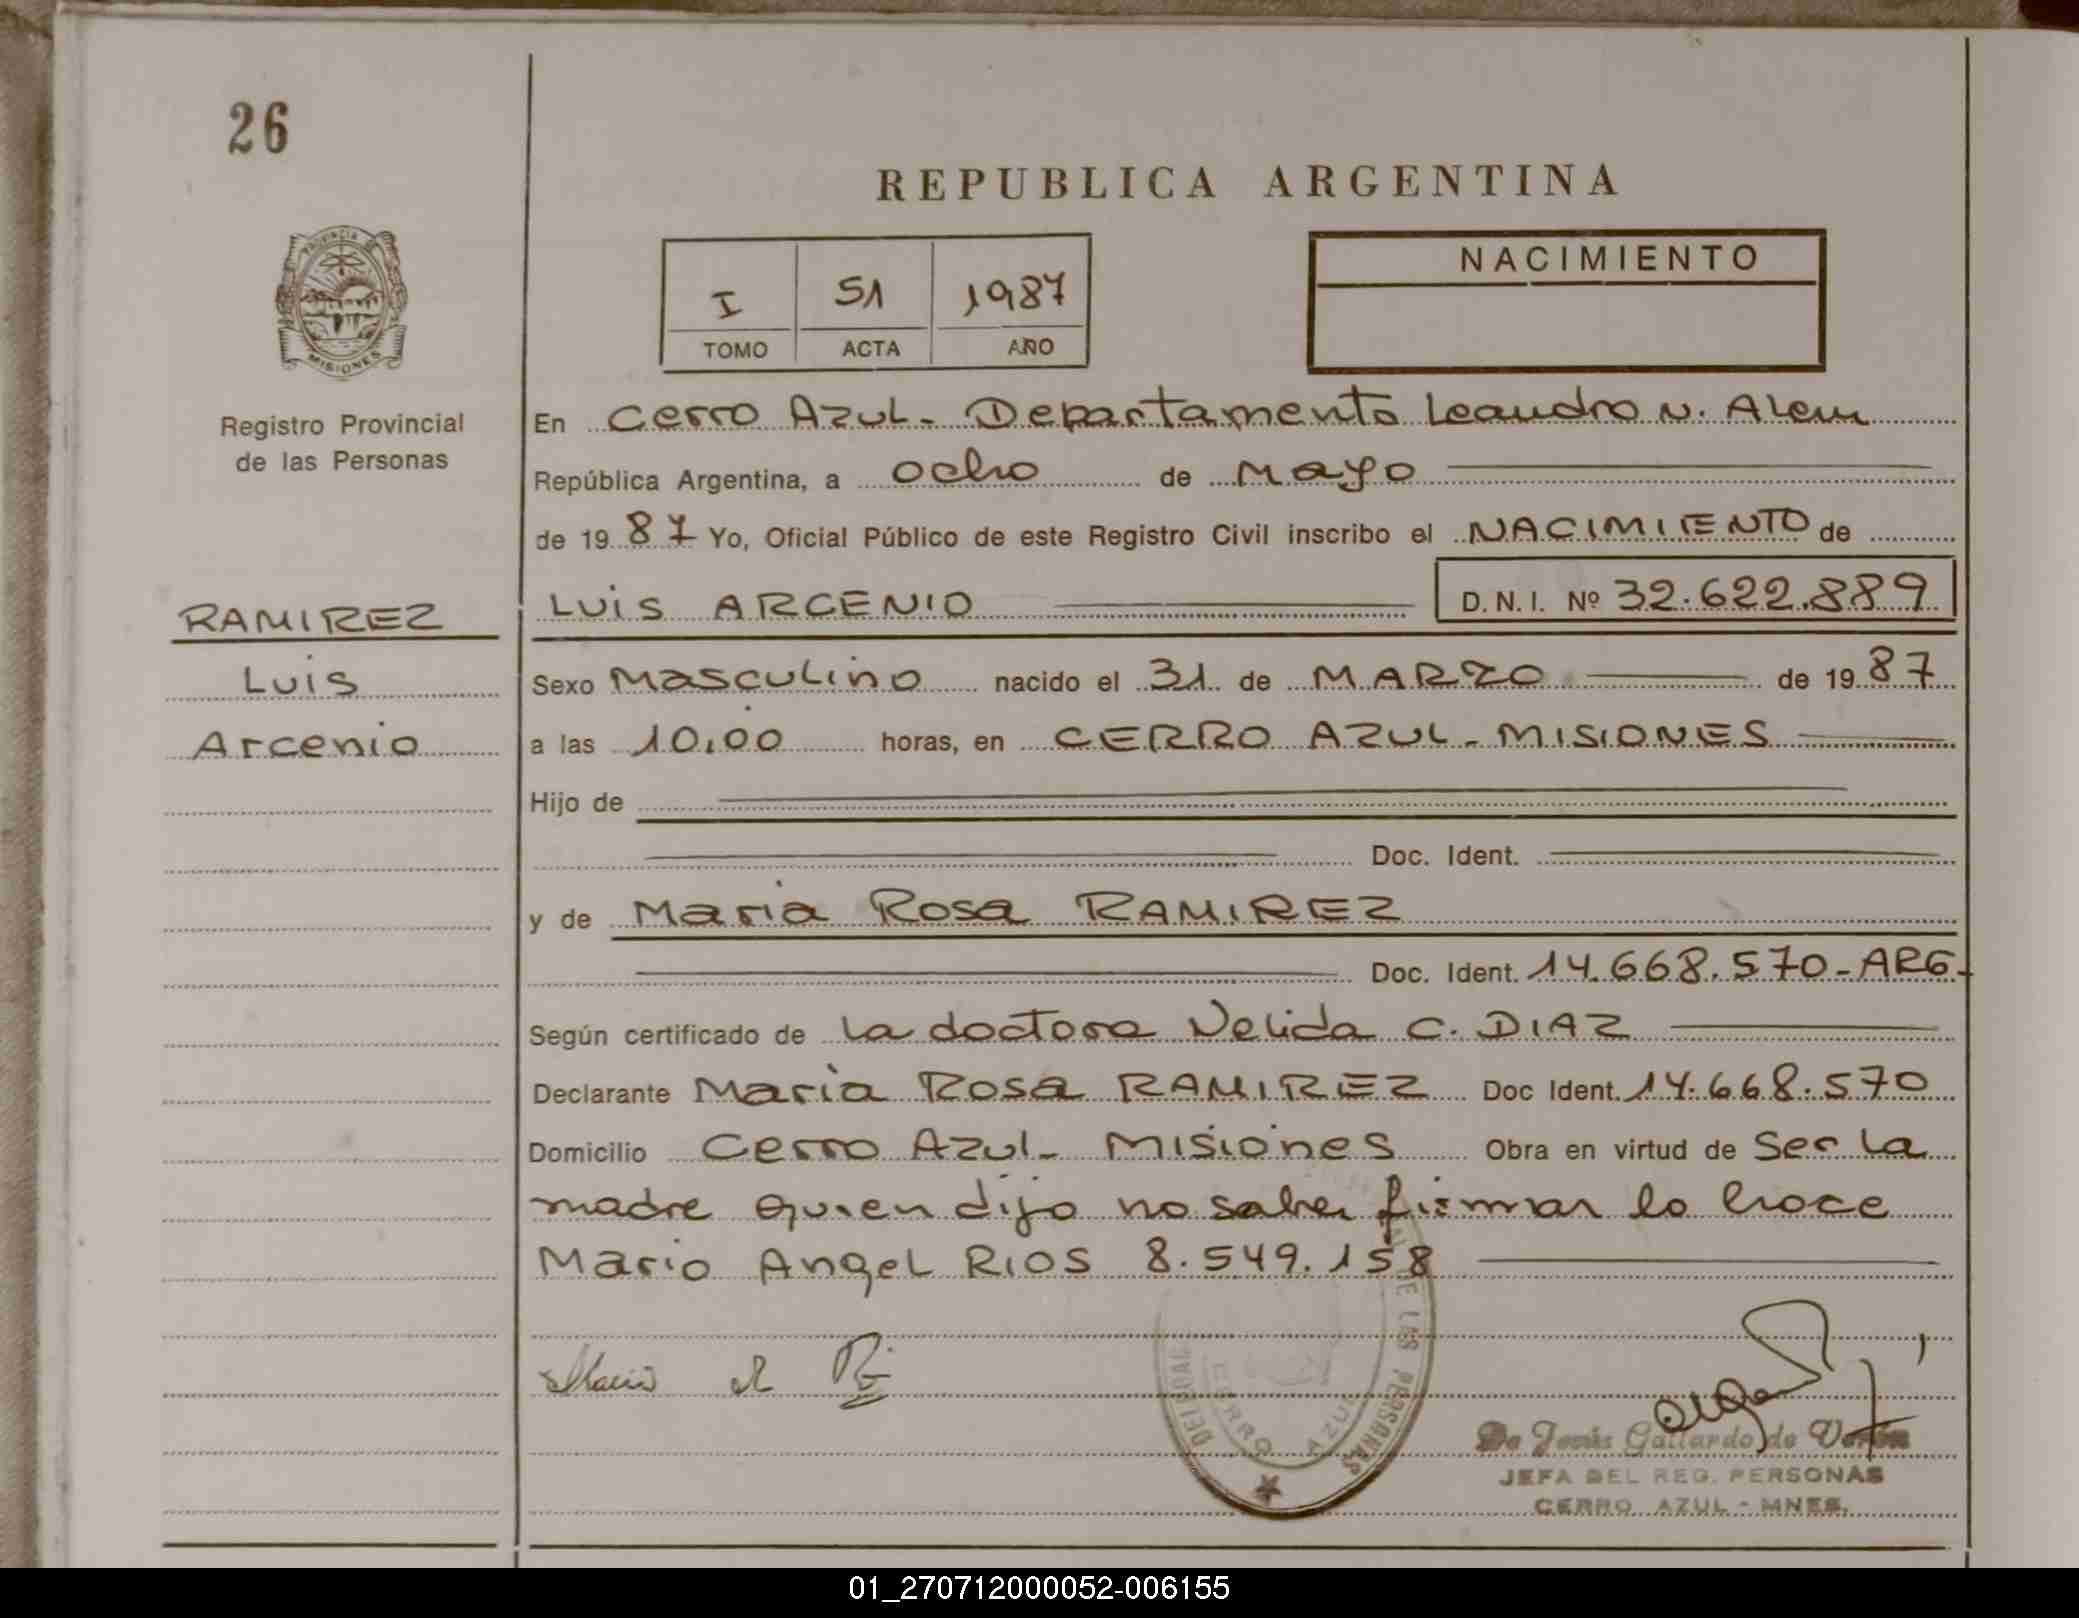 26
REPUBLICA ARGENTINA
PROVINCIA DE
MISIONES
NACIMIENTO
I 51 1987
TOMO ACTA AÑO
Registro Provincial
de las Personas
En Cerro Azul - Departamento Leandro N. Alem
República Argentina, a ocho de Mayo
de 1987 Yo, Oficial Público de este Registro Civil inscribo el NACIMIENTO de
RAMIREZ
Luis
Arcenio
LUIS ARCENIO D.N.I. Nº 32.622.889
Sexo Masculino nacido el 31 de MARZO de 1987
a las 10,00 horas, en CERRO AZUL - MISIONES
Hijo de
Doc. Ident.
y de Maria Rosa RAMIREZ
Doc. Ident. 14.668.570 - ARG -
Según certificado de La doctora Nelida C. DIAZ
Declarante Maria Rosa RAMIREZ Doc Ident. 14.668.570
Domicilio Cerro Azul - Misiones Obra en virtud de Ser la
madre quien dijo no saber firmar lo hace
Mario Angel RIOS 8.549.158
DE LAS PERSONAS
CERRO AZUL
Gallardo de
JEFA DEL REG. PERSONAS
CERRO AZUL - MNES.
01_270712000052-006155